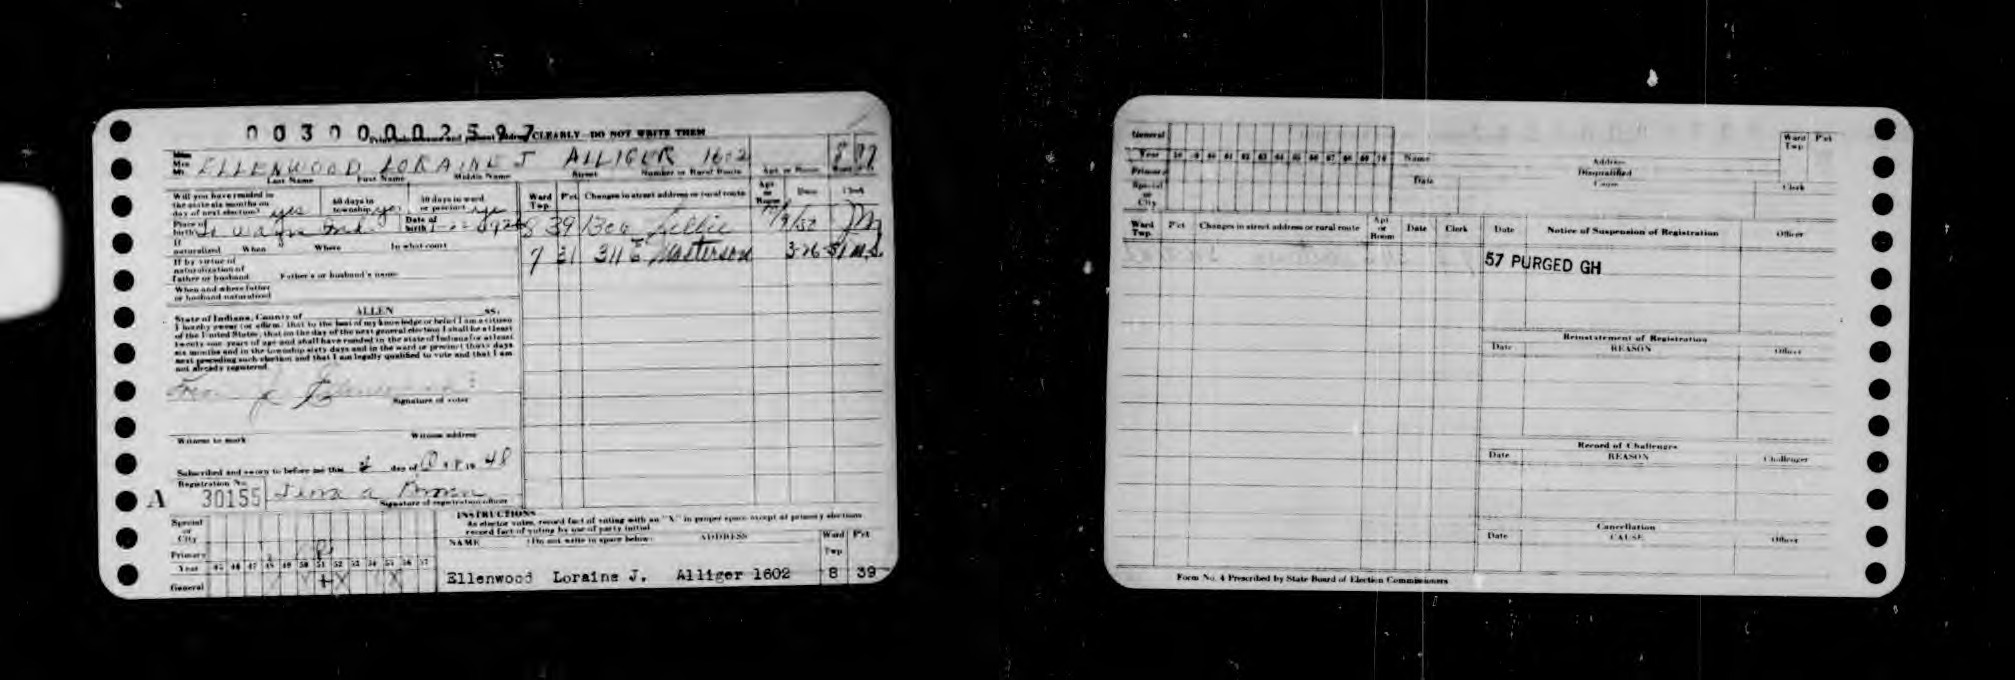 0030000025 97
CLEARLY - DO NOT WRITE THEM
Miss
Mrs
Mr
ELLENWOOD LORAINE J ALLIGER 1602
Last Name First Name Middle Name Street Number or Rural Route Apt. or Room
Will you have resided in
the state six months on
day of next election? yes
60 days in
township yes
30 days in ward
or precinct yes
Place of
birth Ft Wayne Ind.
Date of
birth
If
naturalized When Where In what court
If by virtue of
naturalization of
father or husband Father's or husband's name
When and where father
or husband naturalized
State of Indiana, County of ALLEN ss.
I hereby swear (or affirm) that to the best of my knowledge or belief I am a citizen
of the United States, that on the day of the next general election I shall be at least
twenty-one years of age and shall have resided in the state of Indiana for at least
six months and in the township sixty days and in the ward or precinct thirty days
next preceding such election and that I am legally qualified to vote and that I am
not already registered.
Signature of voter
Witness to mark Witness address
Subscribed and sworn to before me this day of 19 48
Registration No.
A 30155
Signature of registration officer
Ward
Twp. Pct. Changes in street address or rural route Apt
or
Room Date Clerk
8 39
7 31 311 E Masterson 3-26-51 M.S.
Special
or
City
Primary
Year 45 46 47 48 49 50 51 52 53 54 55 56 57
General X X
INSTRUCTIONS
As elector votes, record fact of voting with an "X" in proper space except at primary elections
record fact of voting by use of party initial.
NAME (Do not write in space below) ADDRESS Ward
Twp Pct
Ellenwood Loraine J. Alliger 1602 8 39
General
Year 58 59 60 61 62 63 64 65 66 67 68 69 70
Primary
Special
or
City
Name Address Ward
Twp Pct
Disqualified
Date Cause Clerk
Ward
Twp. Pct Changes in street address or rural route Apt
or
Room Date Clerk
Date Notice of Suspension of Registration Officer
57 PURGED GH
Reinstatement of Registration
Date REASON Officer
Record of Challenges
Date REASON Challenger
Cancellation
Date CAUSE Officer
Form No. 4 Prescribed by State Board of Election Commissioners